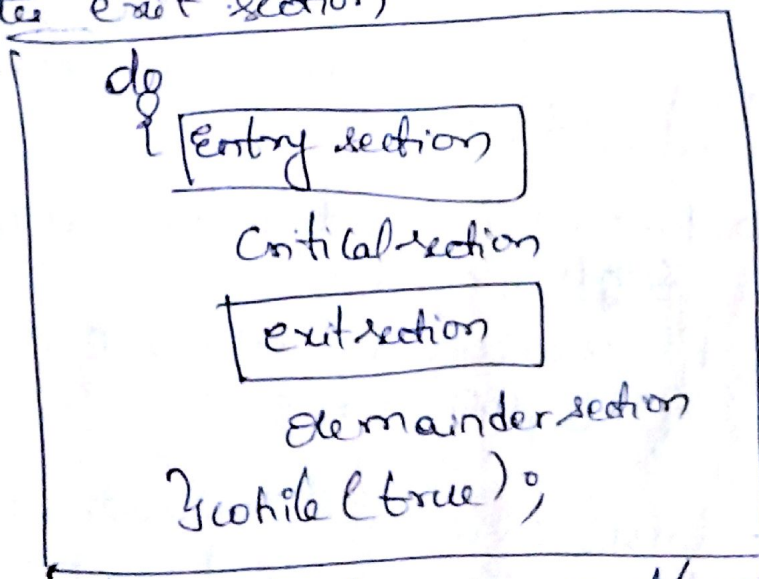 exit section)
do
{ Entry section
Critical section
exit section
remainder section
}while(true);